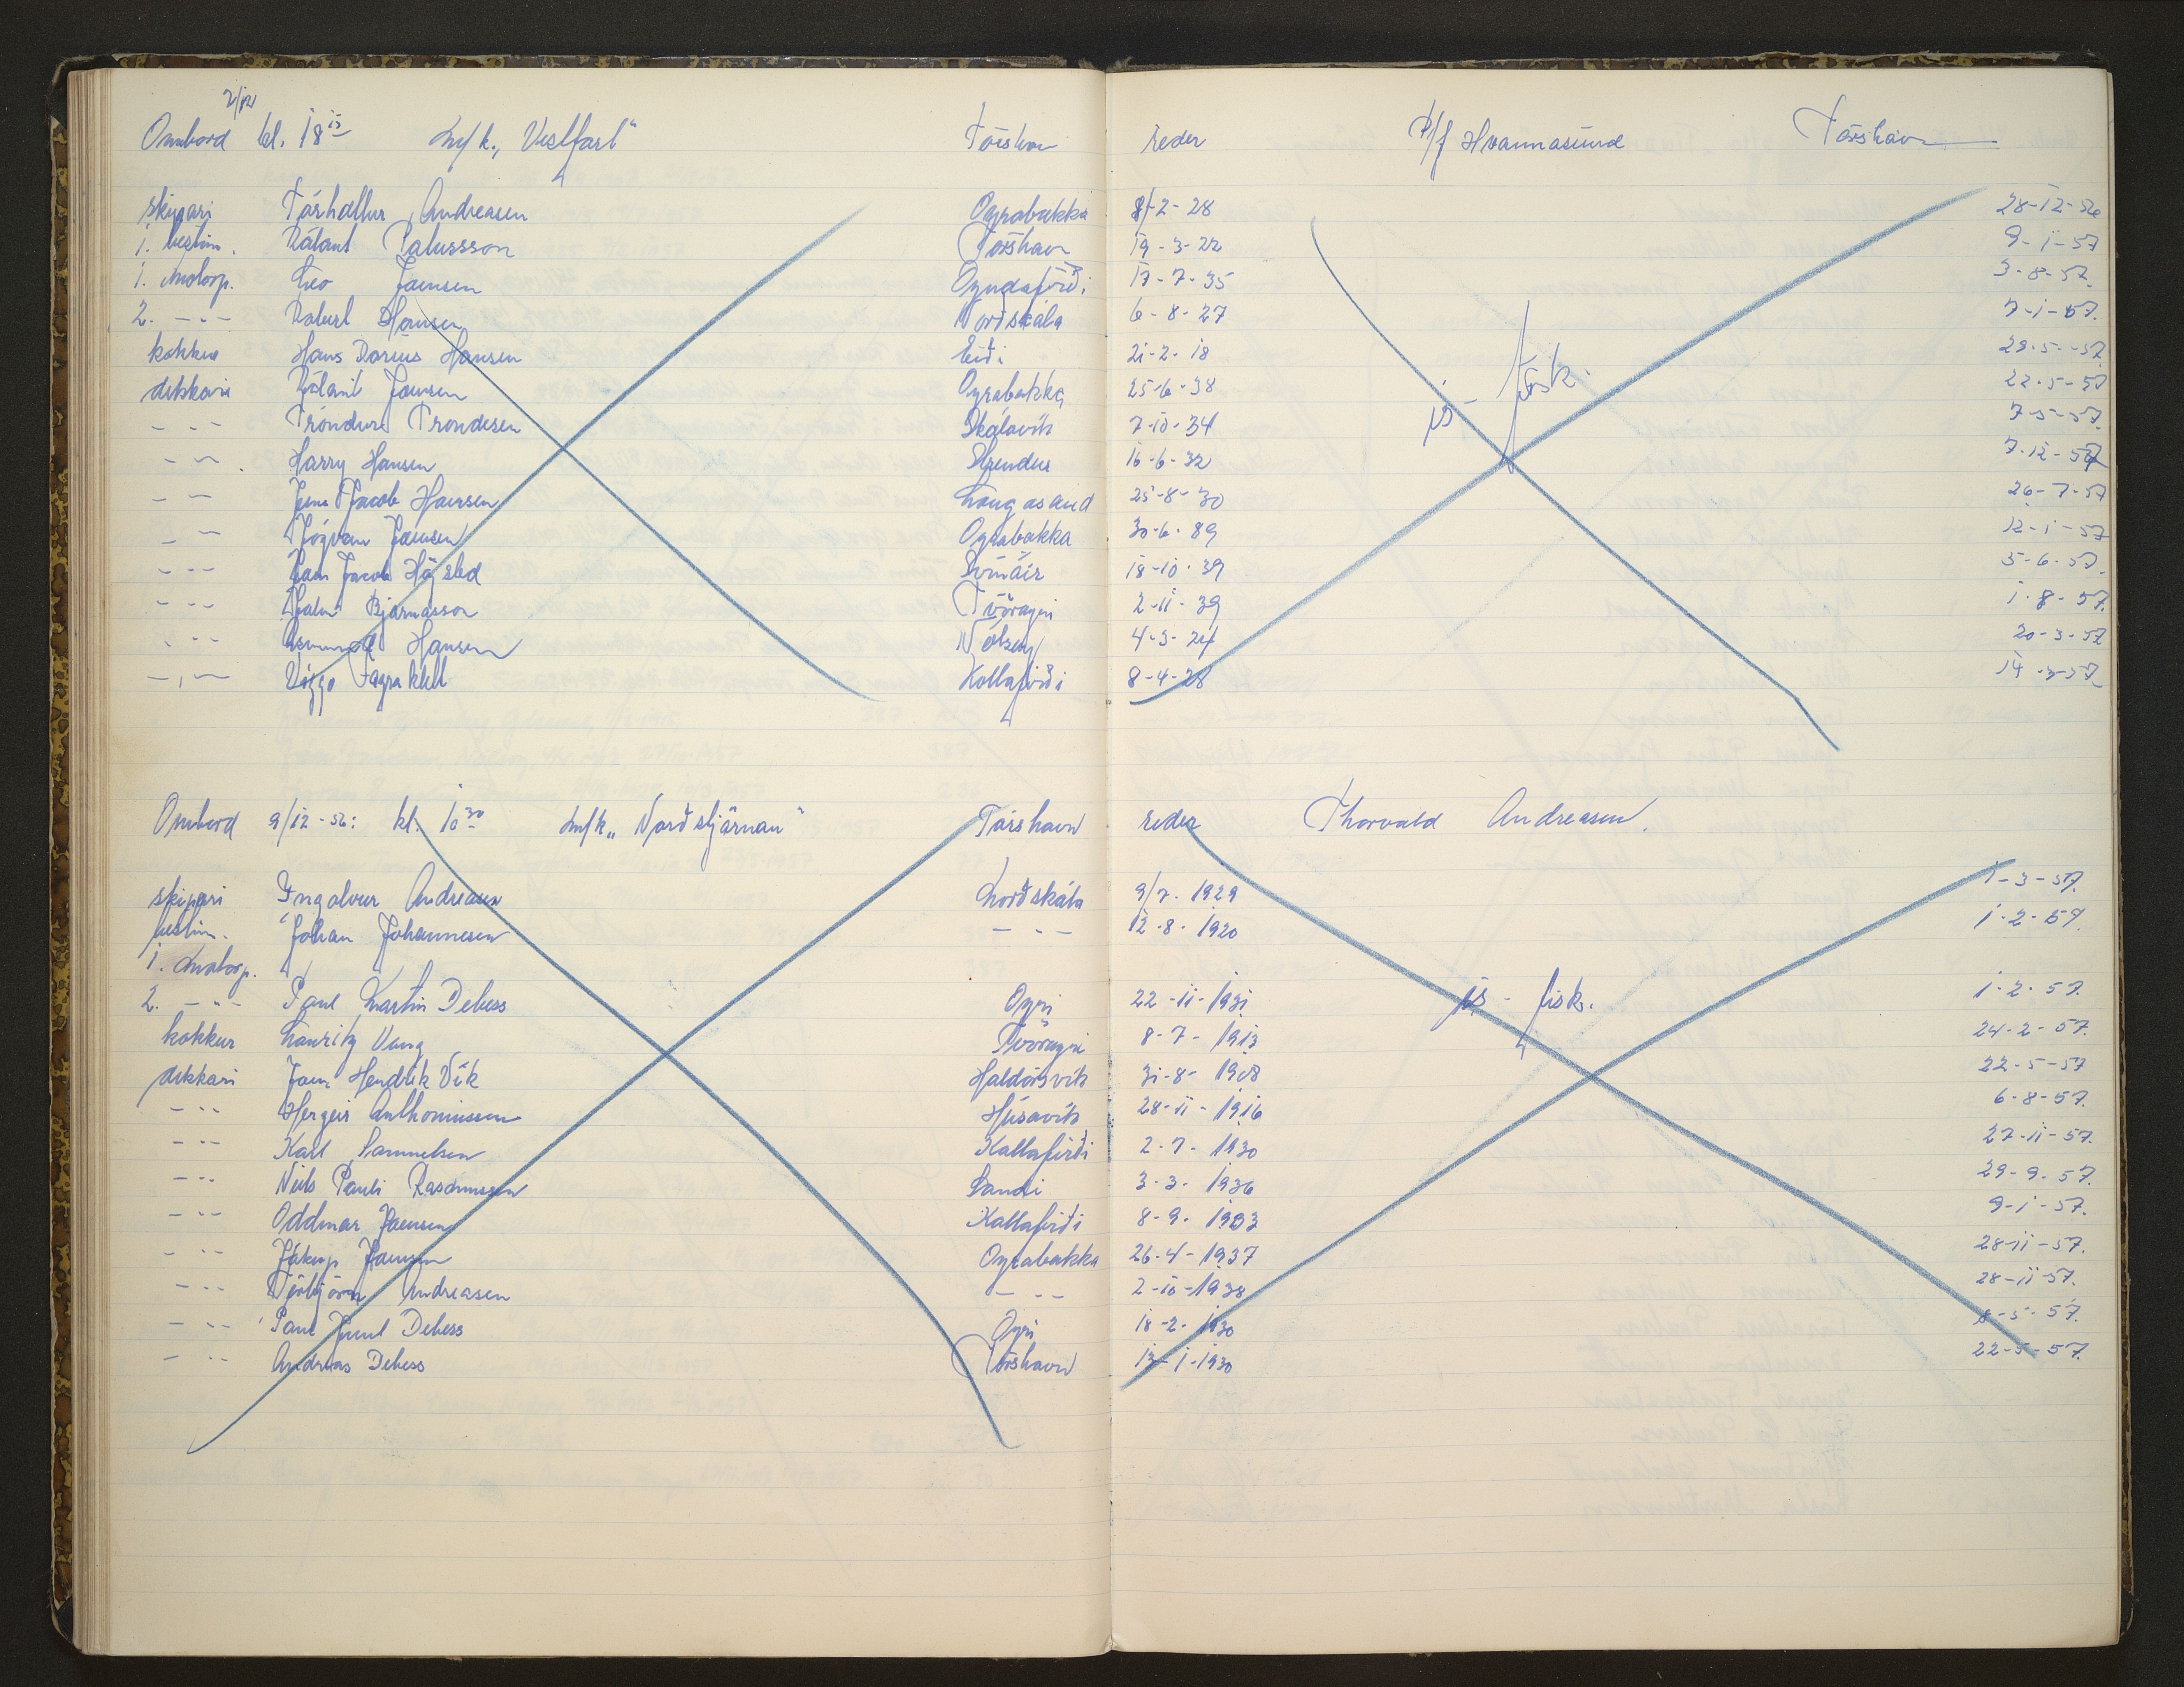 2/12
Ombord kl. 18 15 m/k „Vestfart" Tórshavn reder P/f Hvannasund Tórshavn
skipari Tórhallur Andreasen Oyrabakka 8-2-28 28-12-56
1. bestm. Rólant Paturssson Tórshavn 19-3-22 9-1-57
1. motorp. Leo Joensen Oyndafirði 17-7-35 3-8-57
2. -"- Robert Hansen Norðskála 6-8-27 7-1-57.
kokkur Hans Darius Hansen Eiði 21-2-18 29-5-57
dekkari Rólant Joensen Oyrabakka 25-6-38 22-5-57
-"- Tróndur Trondesen Skálavík 7-10-34 7-5-57.
-"- Harry Hansen Strendur 16-6-32 7-12-57
-"- Jens Jacob Hansen Langasand 25-8-30 26-7-57
-"- Jógvan Joensen Oyrabakka 30-6-89 12-1-57
-"- Jacob Svináir 18-10-39 5-6-57.
-"- Bjarnasson Tvöroyri 2-11-39 1-8-57.
-"- Hansen Nólsoy 4-3-24 20-3-57
-"- Viggo Fagraklett Kollafirði 8-4-28 14-3-57
ís- fisk.
Ombord 9/12-56: kl. 10 30 m/k „Norðstjørnan" Tórshavn reder Thorvald Andreasen.
skipari Ingolvur Andreasen Norðskála 9/7. 1929 1-3-57.
bestm. Jóhan Johannesen -"- 12-8-1920 1-2-57.
1. motorp.
2. -"- Paul Martin Debess Oyri 22-11-1931 1-2-57.
kokkur Lauritz Vang Tvöroyri 8-7-1913 24-2-57.
dekkari Joen Hendrik Vík Haldórsvík 31-8-1908 22-5-57
-"- Hergeir Anthoniussen Húsavík 28-11-1916 6-8-57.
-"- Karl Samuelsen Kollafirði 2-7-1930 27-11-57.
-"- Niels Pauli Rasmussen Sandi 3-3-1936 29-9-57.
-"- Oddmar Joensen Kollafirði 8-9-1933 9-1-57.
-"- Jákup Joensen Oyrabakka 26-4-1937 28-11-57.
-"- Andreasen -"- 2-10-1938 28-11-57.
-"- Paul Juul Debess Oyri 18-2-1930 8-5-57.
-"- Andreas Debess Tórshavn 13-1-1930 22-5-57.
ís- fisk.